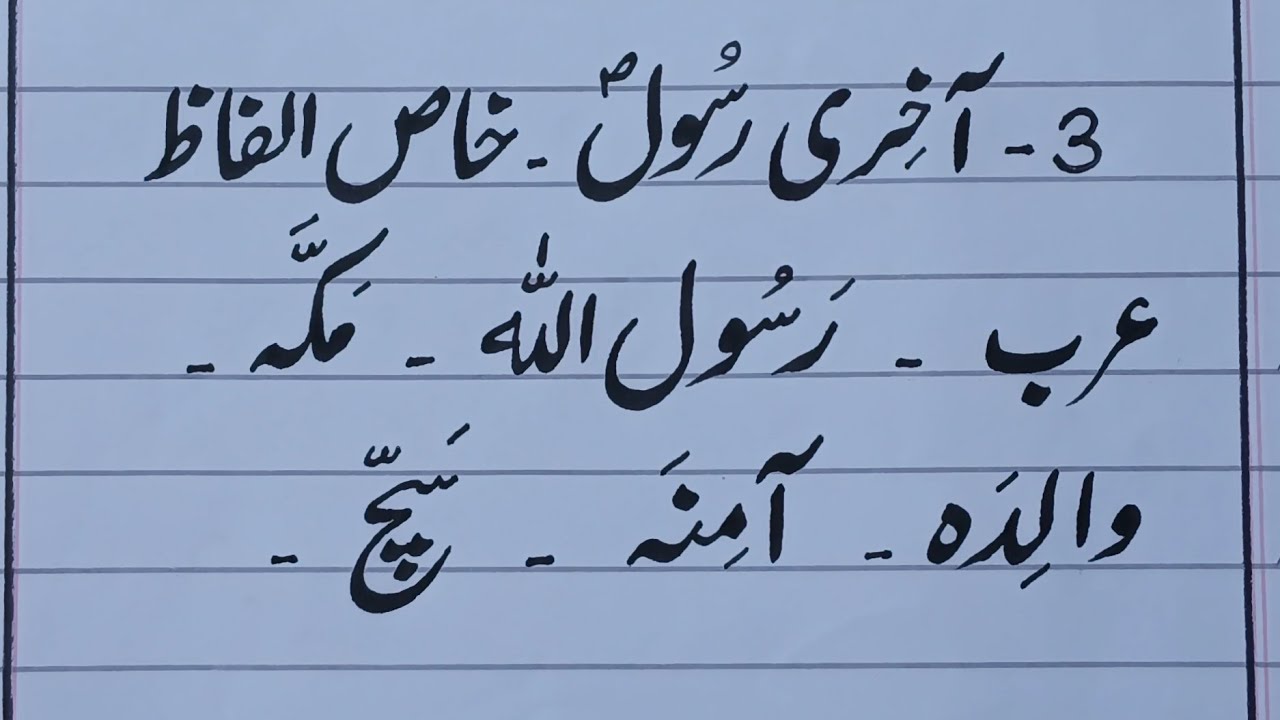 3 - آخِری رسُولؐ - خاص الفاظ
عرب - رَسُول اللّٰه - مَکَّہ -
والِدَہ - آمِنَہ - سَچّ -